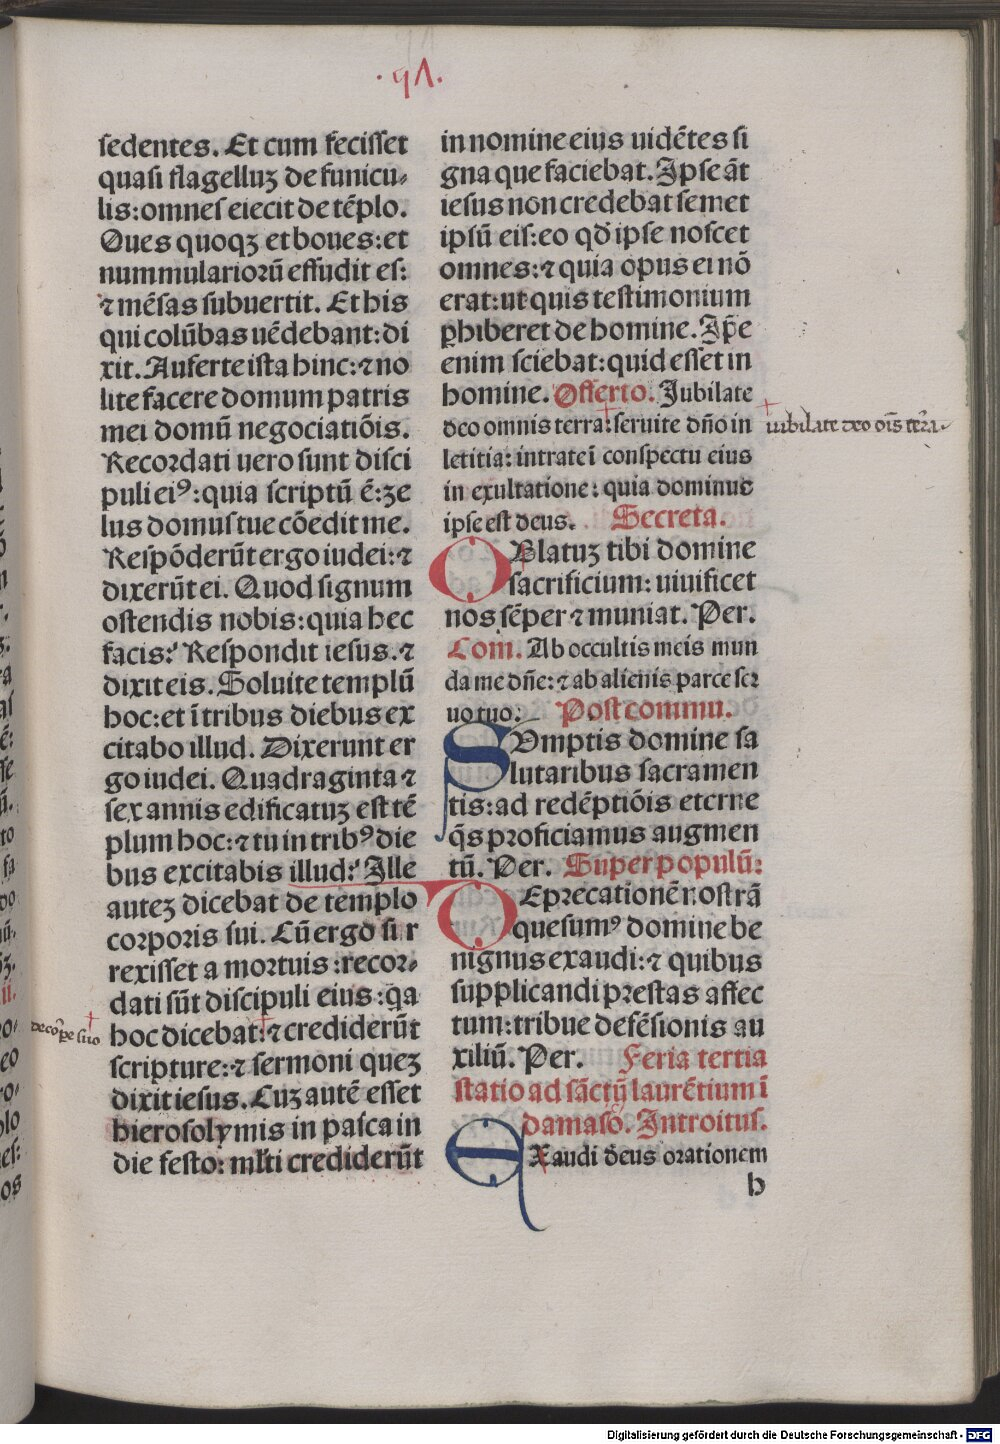 · 91 ·
sedentes. Et cum fecisset
quasi flagelluȝ de funicu⸗
lis: omnes eiecit de tēplo.
Oues quoqȝ et boues: et
nummulariorū effudit es:
⁊ mēsas subuertit. Et his
qui colūbas uēdebant: di
xit. Auferte ista hinc: ⁊ no
lite facere domum patris
mei domū negociatiōis.
Recordati uero sunt disci
puli eiꝰ: quia scriptū ē: ze
lus domus tue cōedit me.
Respōderūt ergo iudei: ⁊
dixerūt ei. Quod signum
ostendis nobis: quia hec
facis: Respondit iesus. ⁊
dixit eis. Soluite templū
hoc: et ī tribus diebus ex
citabo illud. Dixerunt er
go iudei. Quadraginta ⁊
sex annis edificatuȝ est tē
plum hoc: ⁊ tu in tribꝰ die
bus excitabis illud: Ille
auteȝ dicebat de templo
corporis sui. Cū ergo sur
rexisset a mortuis: recor⸗
dati sūt discipuli eius: qa
hoc dicebat: ⁊ crediderūt
de cor̄pe suo
scripture: ⁊ sermoni queȝ
dixit iesus. Cuȝ autē esset
hierosolymis in pasca in
die festo: mlti crediderūt
in nomine eius uidētes si
gna que faciebat. Ipse āt
iesus non credebat semet
ipsū eis: eo qd̄ ipse noscet
omnes: ⁊ quia opus ei nō
erat: ut quis testimonium
ꝑhiberet de homine. Ip̄e
enim sciebat: quid esset in
homine. Offerto. Jubilate
deo omnis terra: seruite dn̄o in
iubilate deo oīs terra.
letitia: intrate ī conspectu eius
in exultatione: quia dominus
ipse est deus. Secreta.
OBlatuȝ tibi domine
sacrificium: uiuificet
nos sēper ⁊ muniat. Per.
Com. Ab occultis meis mun
da me dn̄e: ⁊ ab alienis parce ser
uo tuo. Post commu.
SVmptis domine sa
lutaribus sacramen
tis: ad redēptiōis eterne
q̄s proficiamus augmen
tū. Per. Super populū:
DEprecationē nostrā
quesumꝰ domine be
nignus exaudi: ⁊ quibus
supplicandi prestas affec
tum: tribue defēsionis au
xiliū. Per. Feria tertia
statio ad sāctū laurētium ī
damaso. Introitus.
EXaudi deus orationem
h
Digitalisierung gefördert durch die Deutsche Forschungsgemeinschaft - DFG